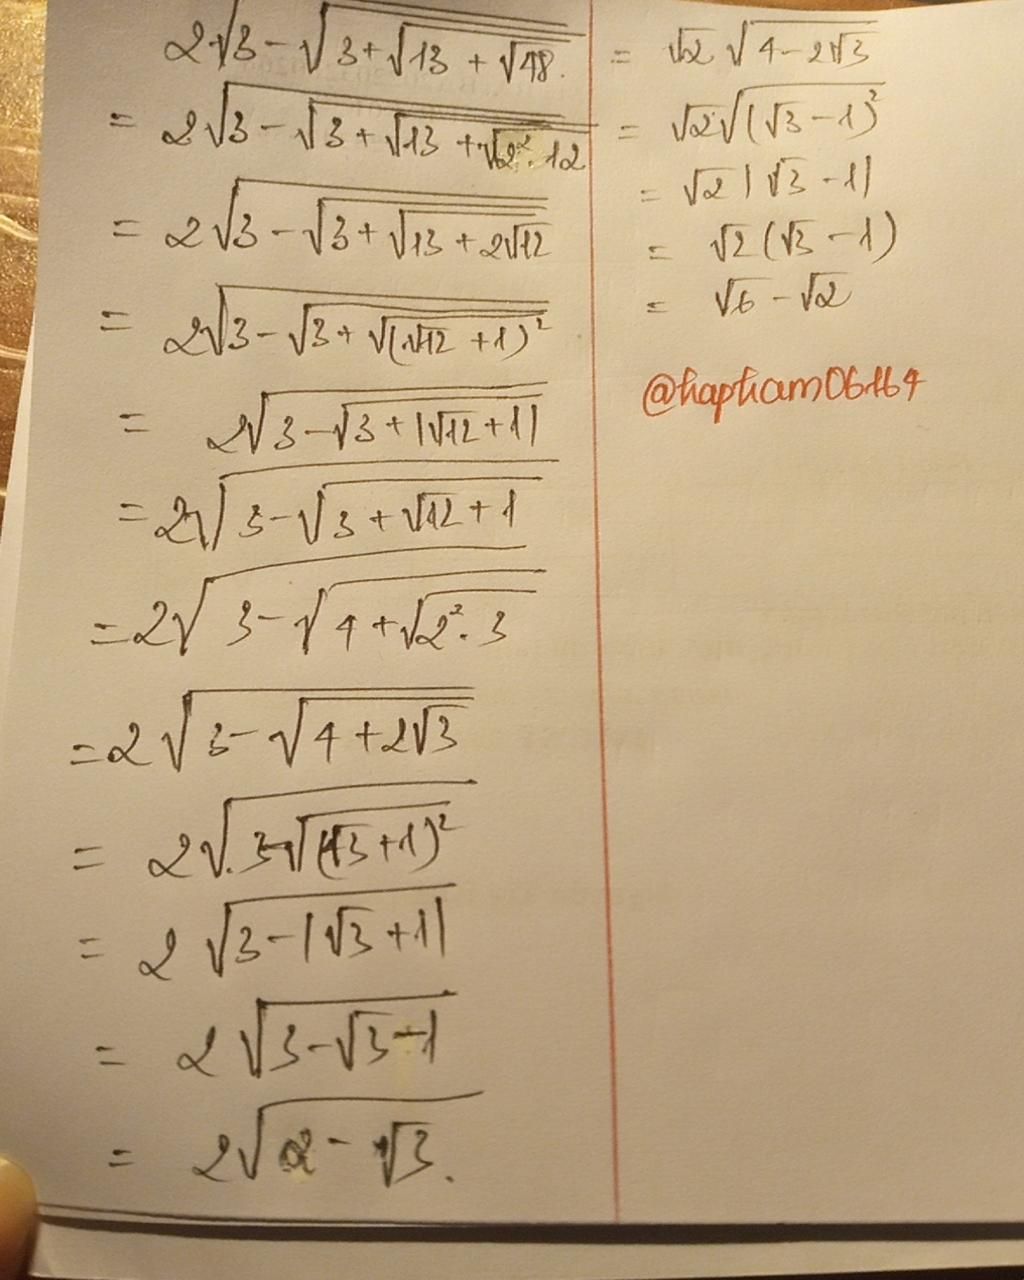 2√(3 - √(3 + √(13 + √48.)))
= 2√(3 - √(3 + √(13 + √(2² . 12))))
= 2√(3 - √(3 + √(13 + 2√12)))
= 2√(3 - √(3 + √((√12 + 1)²)))
= 2√(3 - √(3 + |√12 + 1|))
= 2√(3 - √(3 + √12 + 1))
= 2√(3 - √(4 + √(2² . 3)))
= 2√(3 - √(4 + 2√3))
= 2√(3 - √((√3 + 1)²))
= 2√(3 - |√3 + 1|)
= 2√(3 - √3 - 1)
= 2√(2 - √3).
= √2 √(4 - 2√3)
= √2 √((√3 - 1)²)
= √2 |√3 - 1|
= √2 (√3 - 1)
= √6 - √2